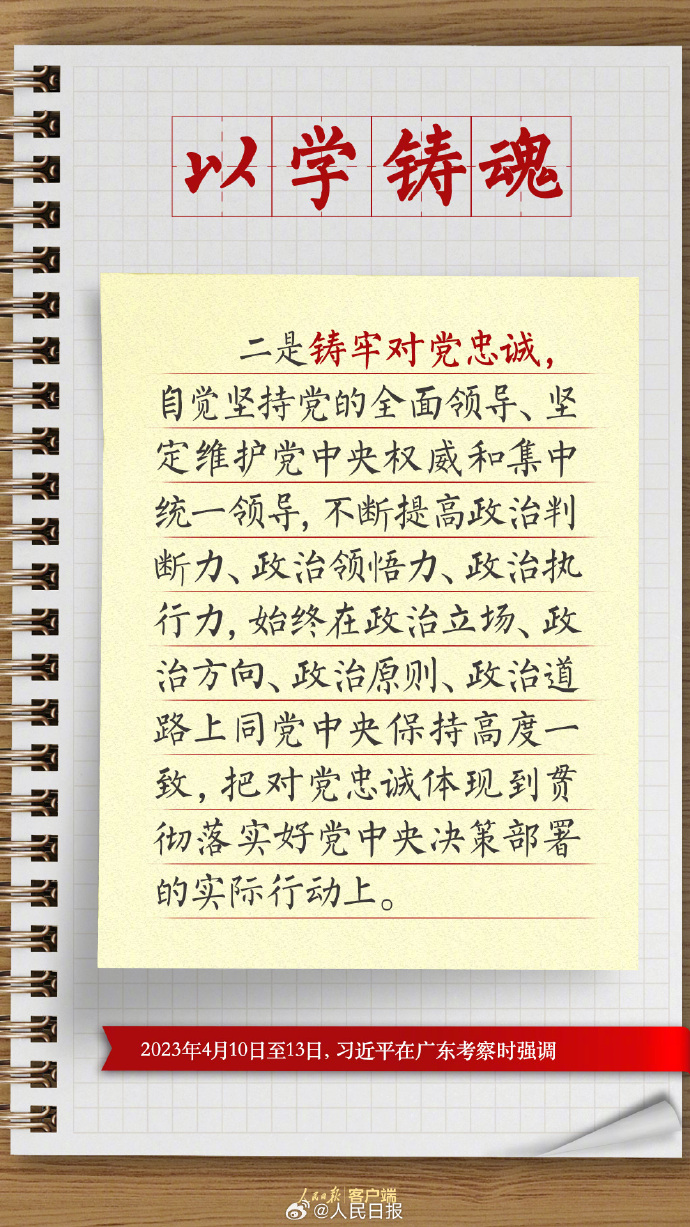 以学铸魂
二是铸牢对党忠诚，
自觉坚持党的全面领导、坚
定维护党中央权威和集中
统一领导，不断提高政治判
断力、政治领悟力、政治执
行力，始终在政治立场、政
治方向、政治原则、政治道
路上同党中央保持高度一
致，把对党忠诚体现到贯
彻落实好党中央决策部署
的实际行动上。
2023年4月10日至13日，习近平在广东考察时强调
人民日报 客户端
@人民日报